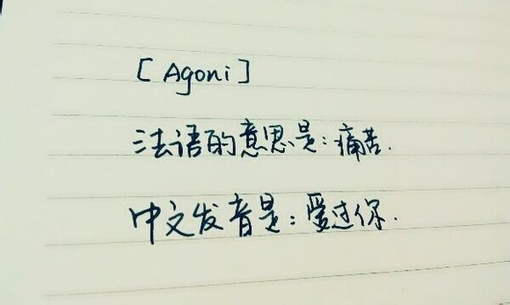 [Agoni]
法语的意思是:痛苦.
中文发音是:爱过你.